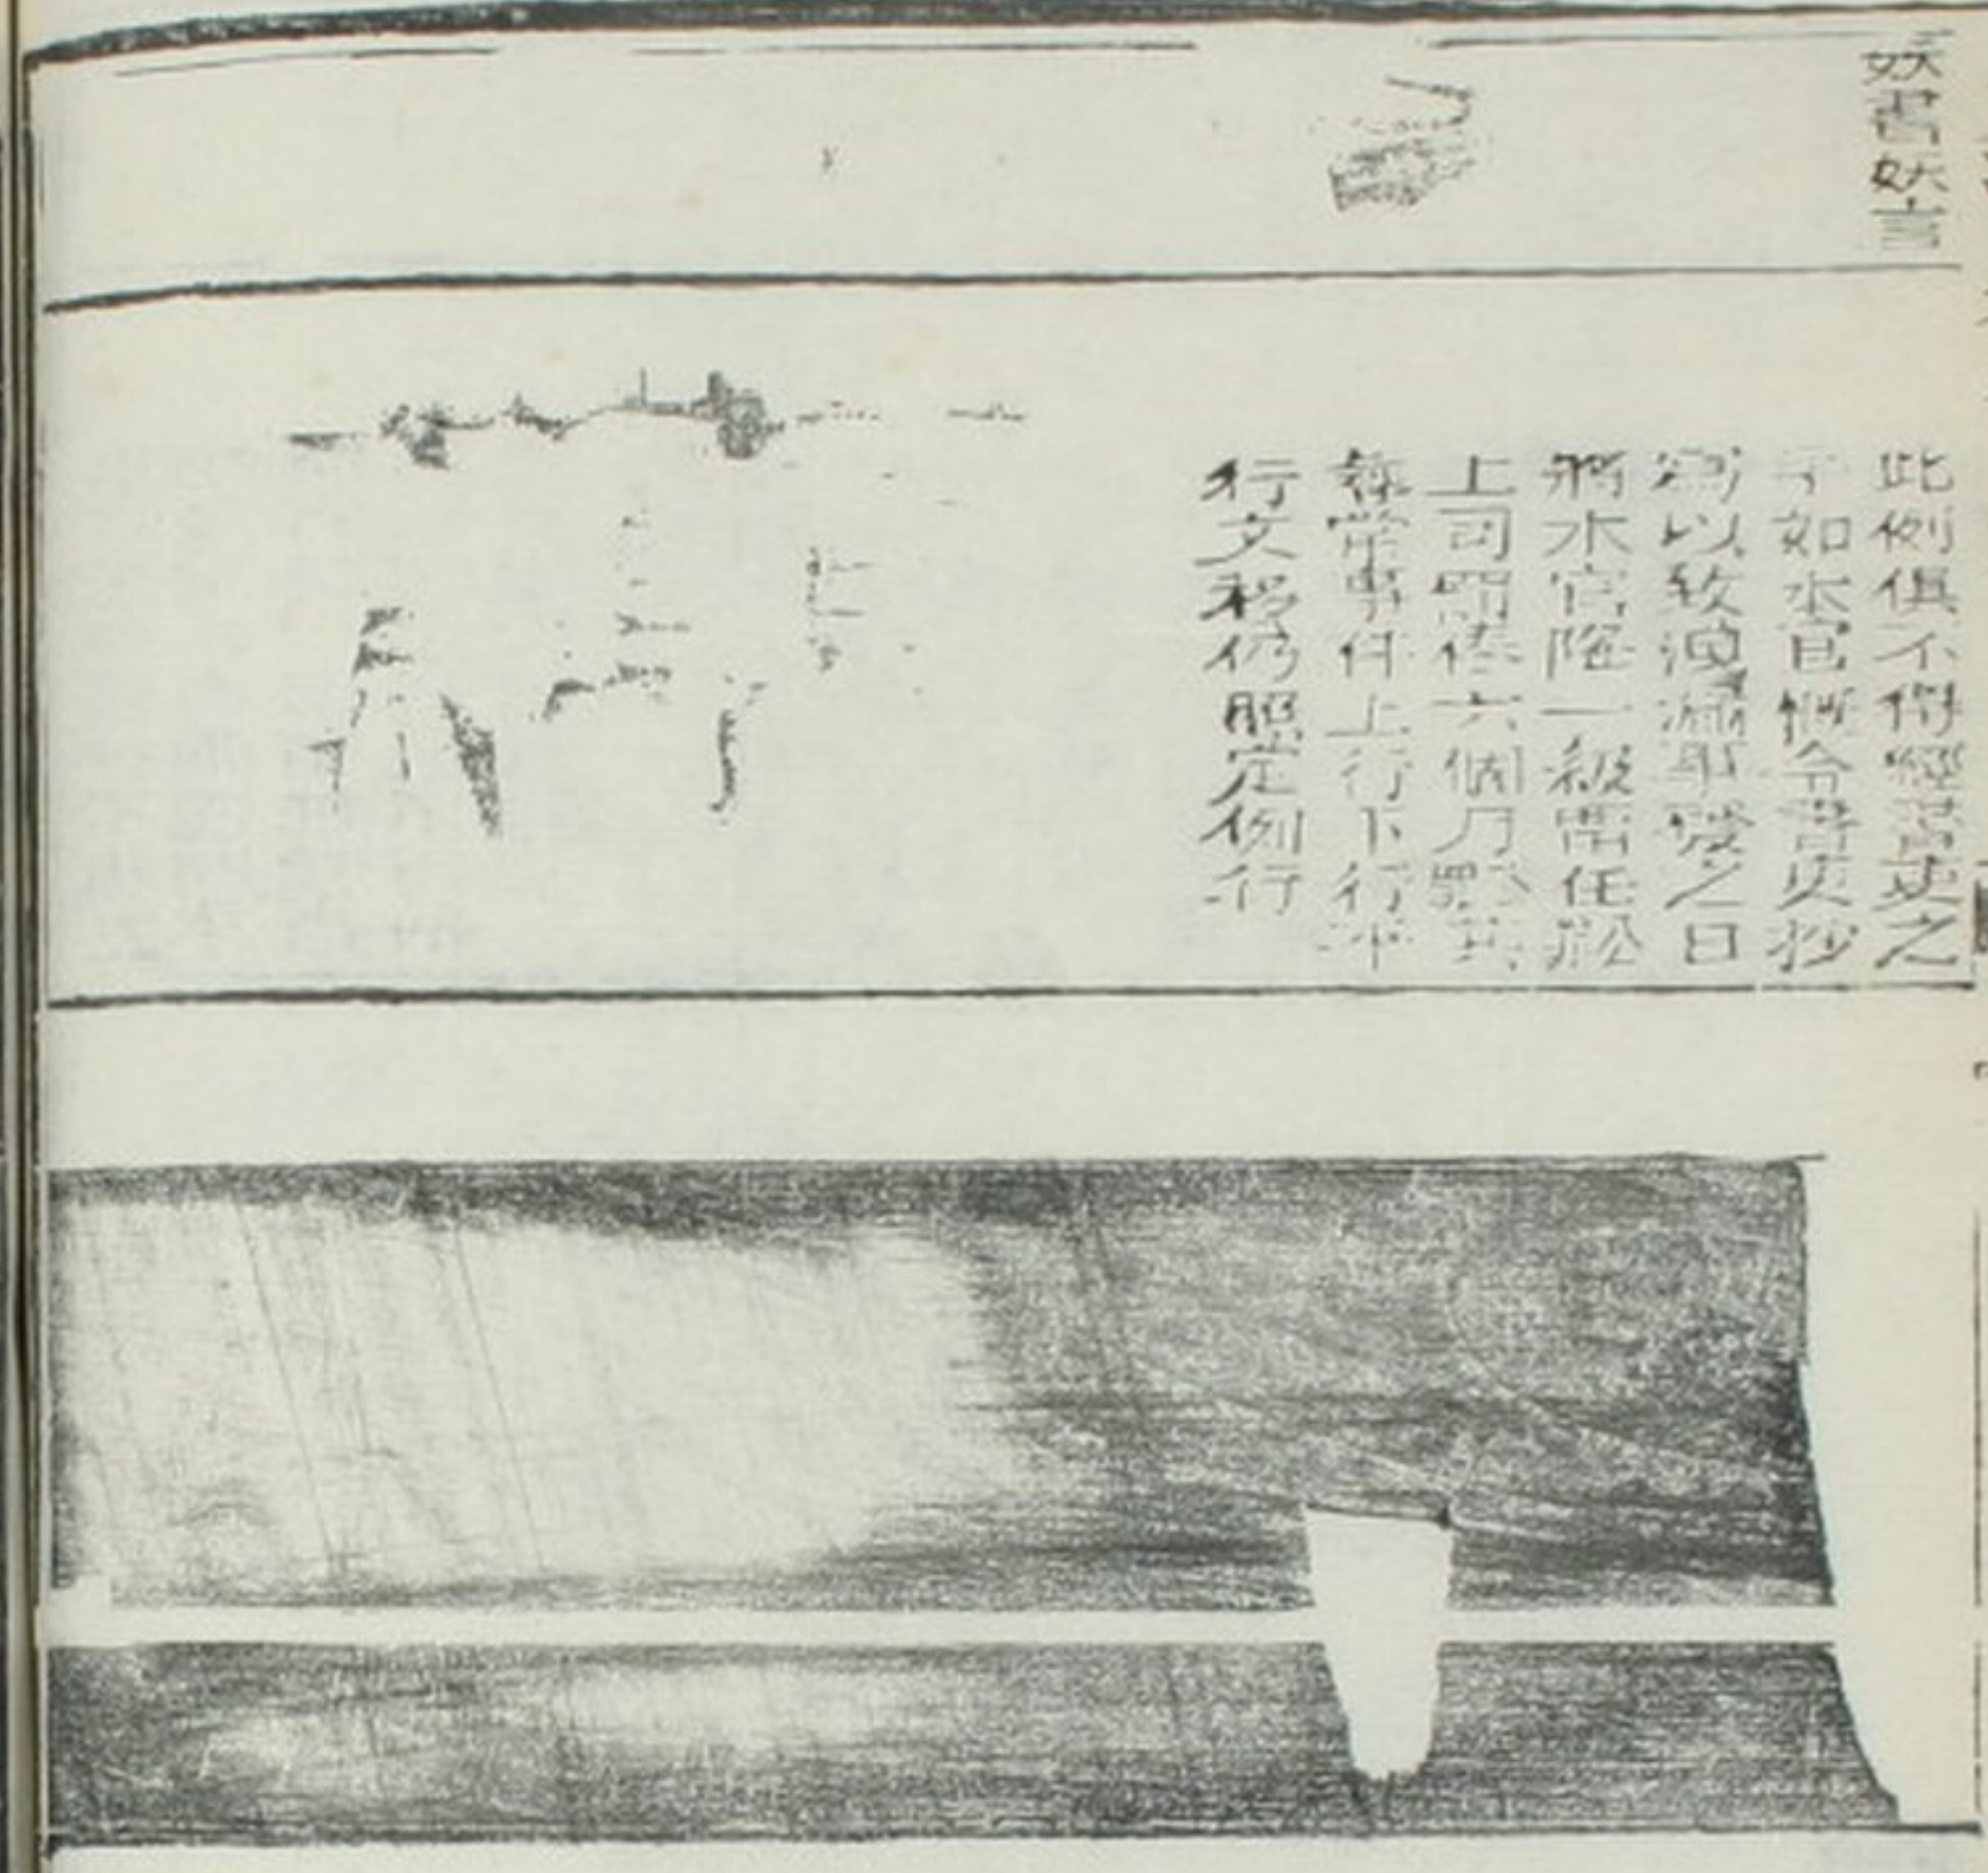 妖書妖言
此例俱不得經書吏之
手如本官懶令書吏抄
寫以致洩漏事發之日
將本官降一級留任於
上司罰俸六個月點其
尋常事件上行下行平
行文移仍照定例行